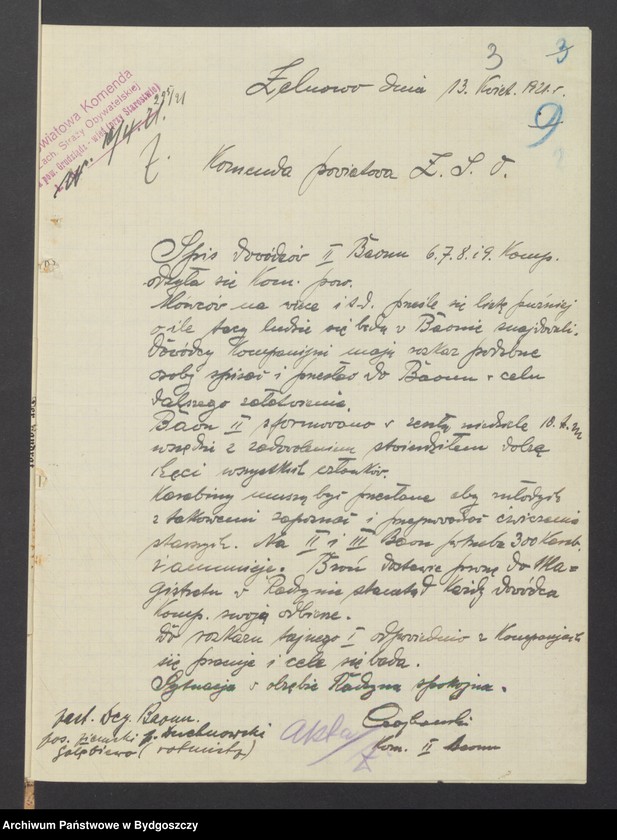 3 3
Powiatowa Komenda
Straży Obywatelskiej
Zelnowo dnia 13. Kwiet. 1921 r.
9
Komenda powiatova Z. S. O.
Spis dovódców II Baonu 6. 7. 8. i 9. Komp.
odsyła się Kom. pow.
Mówców na wiece i t.d. prześle się listę puźniej
o ile tacy ludzie się będą v Baonie znajdovali.
Dovódcy Kompanijni mają rozkaz podobne
osoby spisać i przesłać do Baonu v celu
dalszego załatvienia.
Baon II sformovano v niedzielę 10. 4.
wszędzie z zadovoleniem stvierdziłem dobrą
chęci wszystkich członków.
Karabiny muszą być przesłane aby młodych
z takovemi zapoznać i przeprovadzić ćwiczenia
starszych. Na II i III Baon potrzeba 300 karab.
i amunicję. Broń dostavić proszę do Ma=
gistratu v Radzynie stamtąd każdy dovódca
Komp. swoją odbierze.
Do rozkazu tajnego I odpoviednio z Kompanjach
się pracuje i cele się bada.
Sytuacja v obrębie Radzyna spokojna.
zast. Dcy. Baonu.
pos. ziemski Duchnowski
Gołębiewo (rotmistrz)
Kom. II Baonu
Akta
Archiwum Państwowe w Bydgoszczy